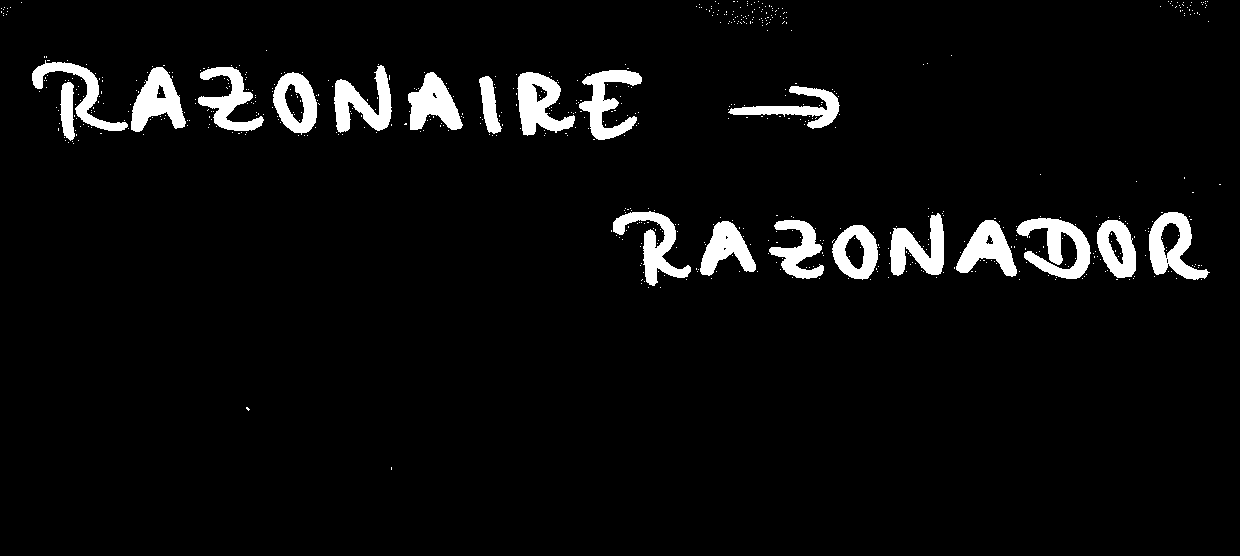 RAZONAIRE →
RAZONADOR